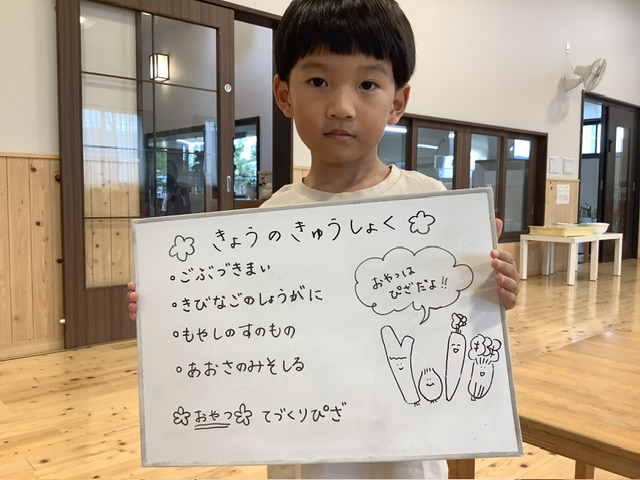 きょうのきゅうしょく
・ごぶづきまい
・きびなごのしょうがに
・もやしのすのもの
・あおさのみそしる
おやつ てづくりぴざ
おやつは
ぴざだよ!!